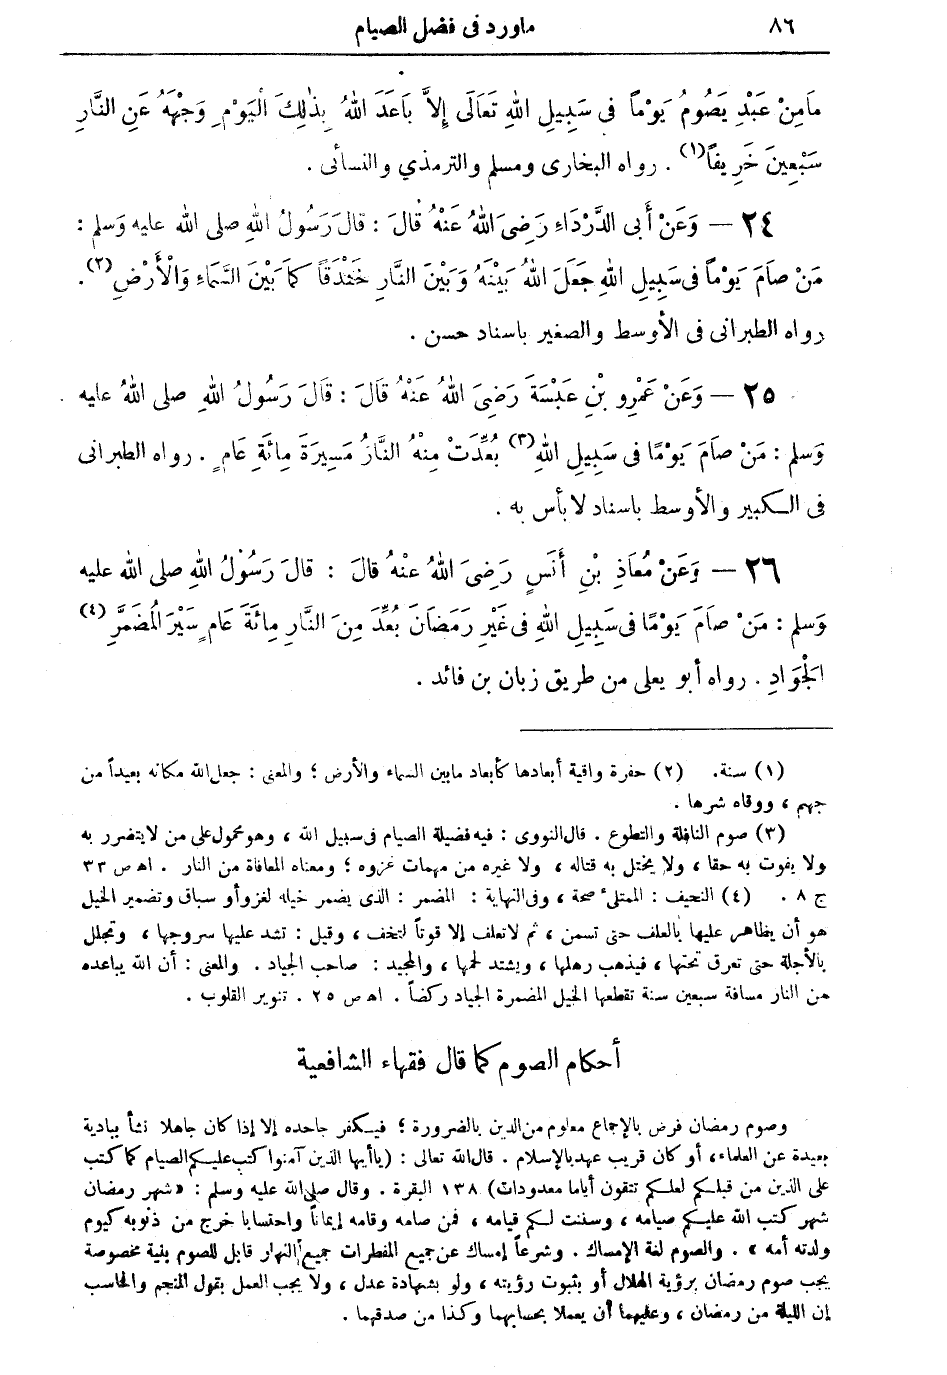 ٨٦ ماورد فى فضل الصيام
مَامِنْ عَبْدٍ يَصُومُ يَوْماً فى سَبِيلِ اللهِ تَعَالَى إِلاَّ بَاعَدَ اللهُ بِذٰلِكَ الْيَوْمِ وَجْهَهُ عَنِ النَّارِ
سَبْعِينَ خَرِيفاً(١) . رواه البخارى ومسلم والترمذي والنسائى .
٢٤ — وَعَنْ أَبى الدَّرْدَاءِ رَضِىَ اللهُ عَنْهُ قَالَ : قَالَ رَسُولُ اللهِ صلى الله عليه وَسلم :
مَنْ صَامَ يَوْماً فى سَبِيلِ اللهِ جَعَلَ اللهُ بَيْنَهُ وَبَيْنَ النَّارِ خَنْدَقاً كَمَا بَيْنَ السَّمَاءِ وَالْأَرْضِ(٢).
رواه الطبرانى فى الأوسط والصغير باسناد حسن .
٢٥ — وَعَنْ عَمْرِو بْنِ عَبْسَةَ رَضِىَ اللهُ عَنْهُ قَالَ : قَالَ رَسُولُ اللهِ صلى اللهُ عليه
وَسلم : مَنْ صَامَ يَوْمًا فى سَبِيلِ اللهِ(٣) بُعِّدَتْ مِنْهُ النَّارُ مَسِيرَةَ مِائَةِ عَامٍ . رواه الطبرانى
فى الكبير والأوسط باسناد لا بأس به .
٢٦ — وَعَنْ مُعَاذِ بْنِ أَنَسٍ رَضِىَ اللهُ عنْهُ قالَ : قالَ رَسُولُ اللهِ صلى الله عليه
وَسلم : مَنْ صَامَ يَوْمًا فى سَبِيلِ اللهِ فى غَيْرِ رَمَضَانَ بُعِّدَ مِنَ النَّارِ مِائَةَ عَامٍ سَيْرَ الْمُضَمَّرِ (٤)
الْجَوَادِ . رواه أبو يعلى من طريق زبان بن فائد .
(١) سنة. (٢) حفرة واقية أبعادها كأبعاد مابين السماء والأرض ؛ والمعنى : جعل الله مكانه بعيداً من
جهنم ، ووقاه شرها .
(٣) صوم النافلة والتطوع . قال النووى : فيه فضيلة الصيام فى سبيل الله ، وهو محمول على من لا يتضرر به
ولا يفوت به حقا ، ولا يختل به قتاله ، ولا غيره من مهمات غزوه ؛ ومعناه المعافاة من النار . اهـ ص ٣٣
ج ٨ . (٤) النحيف : الممتلئ صحة ، وفى النهاية : المضمر : الذى يضمر خيله لغزو أو سباق وتضمير الخيل
هو أن يظاهر عليها بالعلف حتى تسمن ، ثم لا تعلف إلا قوتاً لتخف ، وقيل : تشد عليها سروجها ، وتجلل
بالأجلة حتى تعرق تحتها ، فيذهب رهلها ، ويشتد لحمها ، والمجيد : صاحب الجياد . والمعنى : أن الله يباعده
من النار مسافة سبعين سنة تقطعها الخيل المضمرة الجياد ركضاً . اهـ ص ٢٥ . تنوير القلوب .
أحكام الصوم كما قال فقهاء الشافعية
وصوم رمضان فرض بالإجماع معلوم من الدين بالضرورة ؛ فيكفر جاحده إلا إذا كان جاهلا نشأ ببادية
بعيدة عن العلماء ، أو كان قريب عهد بالإسلام . قال الله تعالى : (ياأيها الذين آمنوا كتب عليكم الصيام كما كتب
على الذين من قبلكم لعلكم تتقون أياما معدودات) ١٣٨ البقرة . وقال صلى الله عليه وسلم : «شهر رمضان
شهر كتب الله عليكم صيامه ، وسننت لكم قيامه ، فمن صامه وقامه إيماناً واحتسابا خرج من ذنوبه كيوم
ولدته أمه » . والصوم لغة الإمساك . وشرعاً إمساك عن جميع المفطرات جميع النهار قابل للصوم بنية مخصوصة
يجب صوم رمضان برؤية الهلال أو بثبوت رؤيته ، ولو بشهادة عدل ، ولا يجب العمل بقول المنجم والحاسب
إن الليلة من رمضان ، وعليهما أن يعملا بحسابهما وكذا من صدقهما .